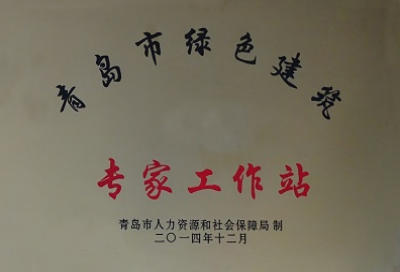 青岛市绿色建筑
专家工作站
青岛市人力资源和社会保障局 制
二〇一四年十二月